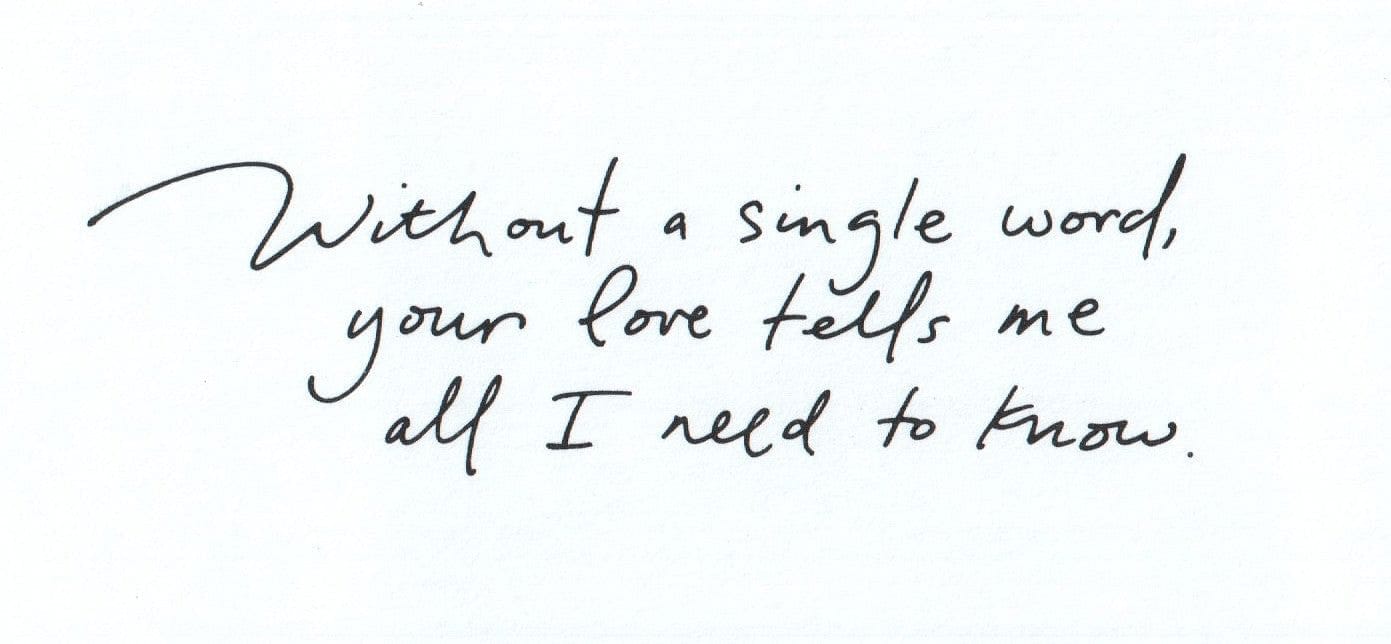 Without a single word,
your love tells me
all I need to know.